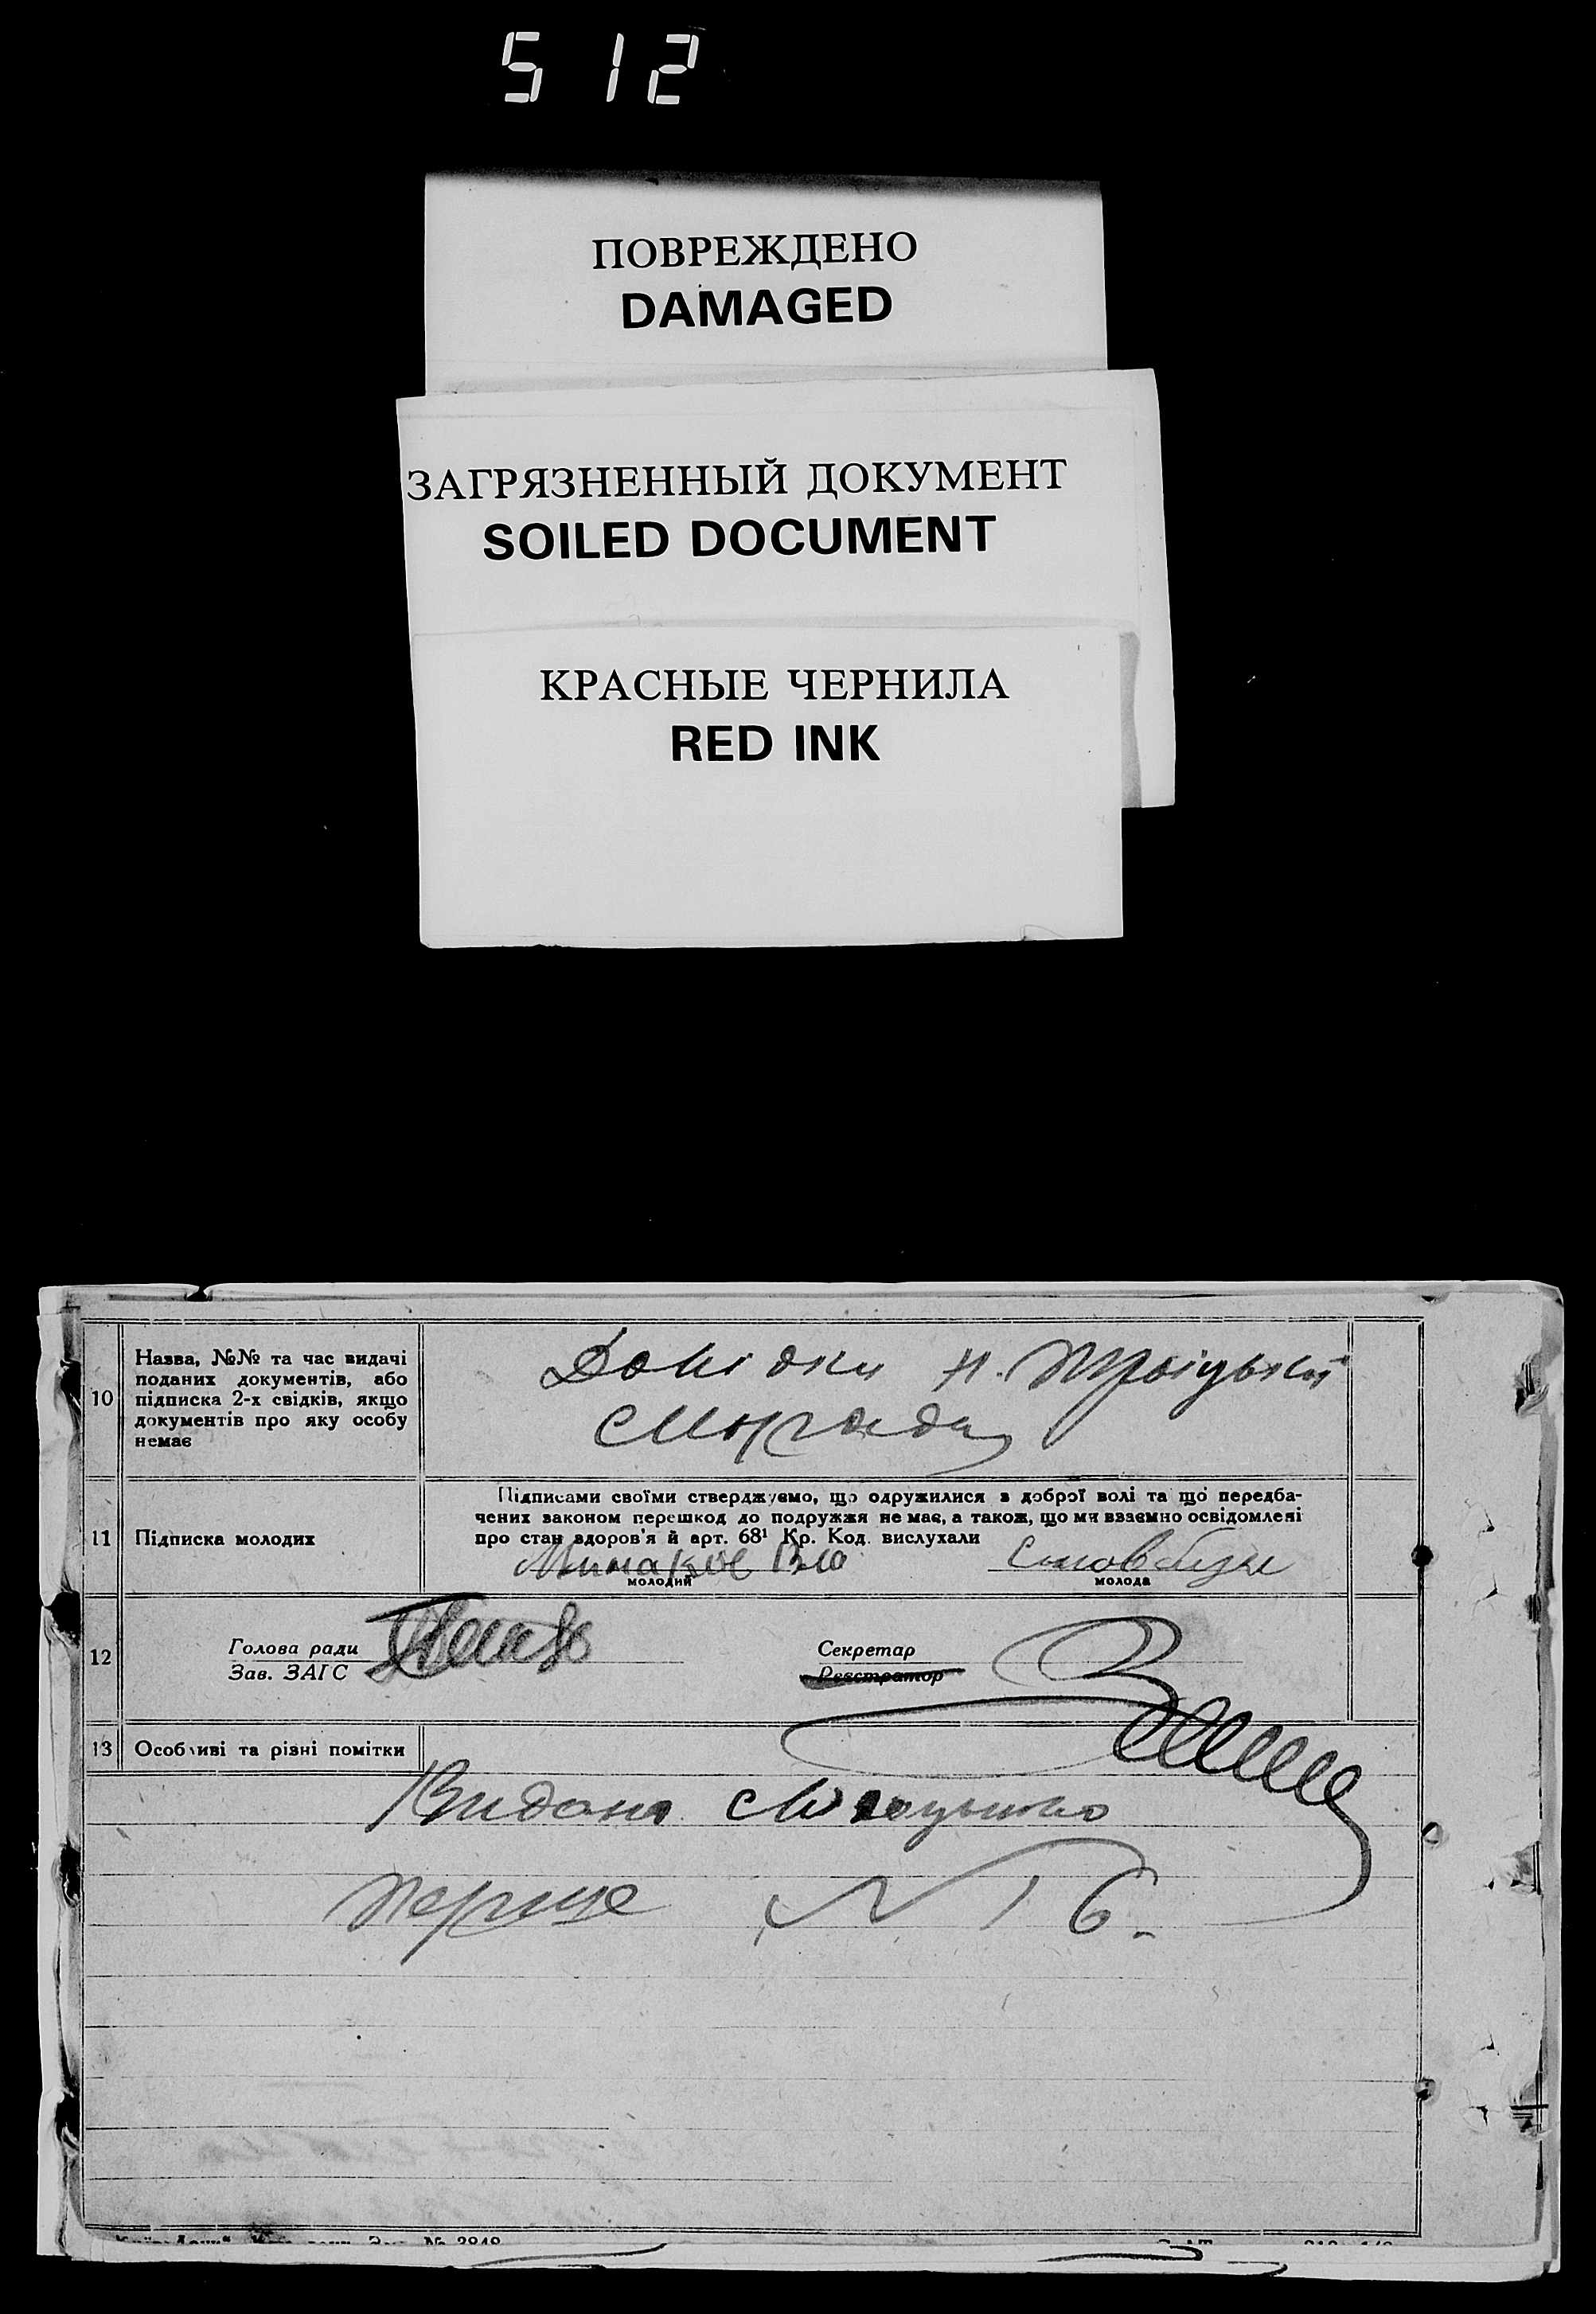 512
ПОВРЕЖДЕНО
DAMAGED
ЗАГРЯЗНЕННЫЙ ДОКУМЕНТ
SOILED DOCUMENT
КРАСНЫЕ ЧЕРНИЛА
RED INK
10
Назва, №№ та час видачі
поданих документів, або
підписка 2-х свідків, якщо
документів про яку особу
немає
Довідки Н. Троіцької
11
Підписка молодих
Підписами своїми стверджуємо, що одружилися з доброї волі та що передба-
чених законом перешкод до подружжя не має, а також, що ми взаємно освідомлені
про стан здоров'я й арт. 68¹ Кр. Код. вислухали
Минаков
молодий
молода
12
Голова ради
Зав. ЗАГС
Секретар
Реєстратор
13
Особливі та різні помітки
Видано
перше N 16.
№ 3848